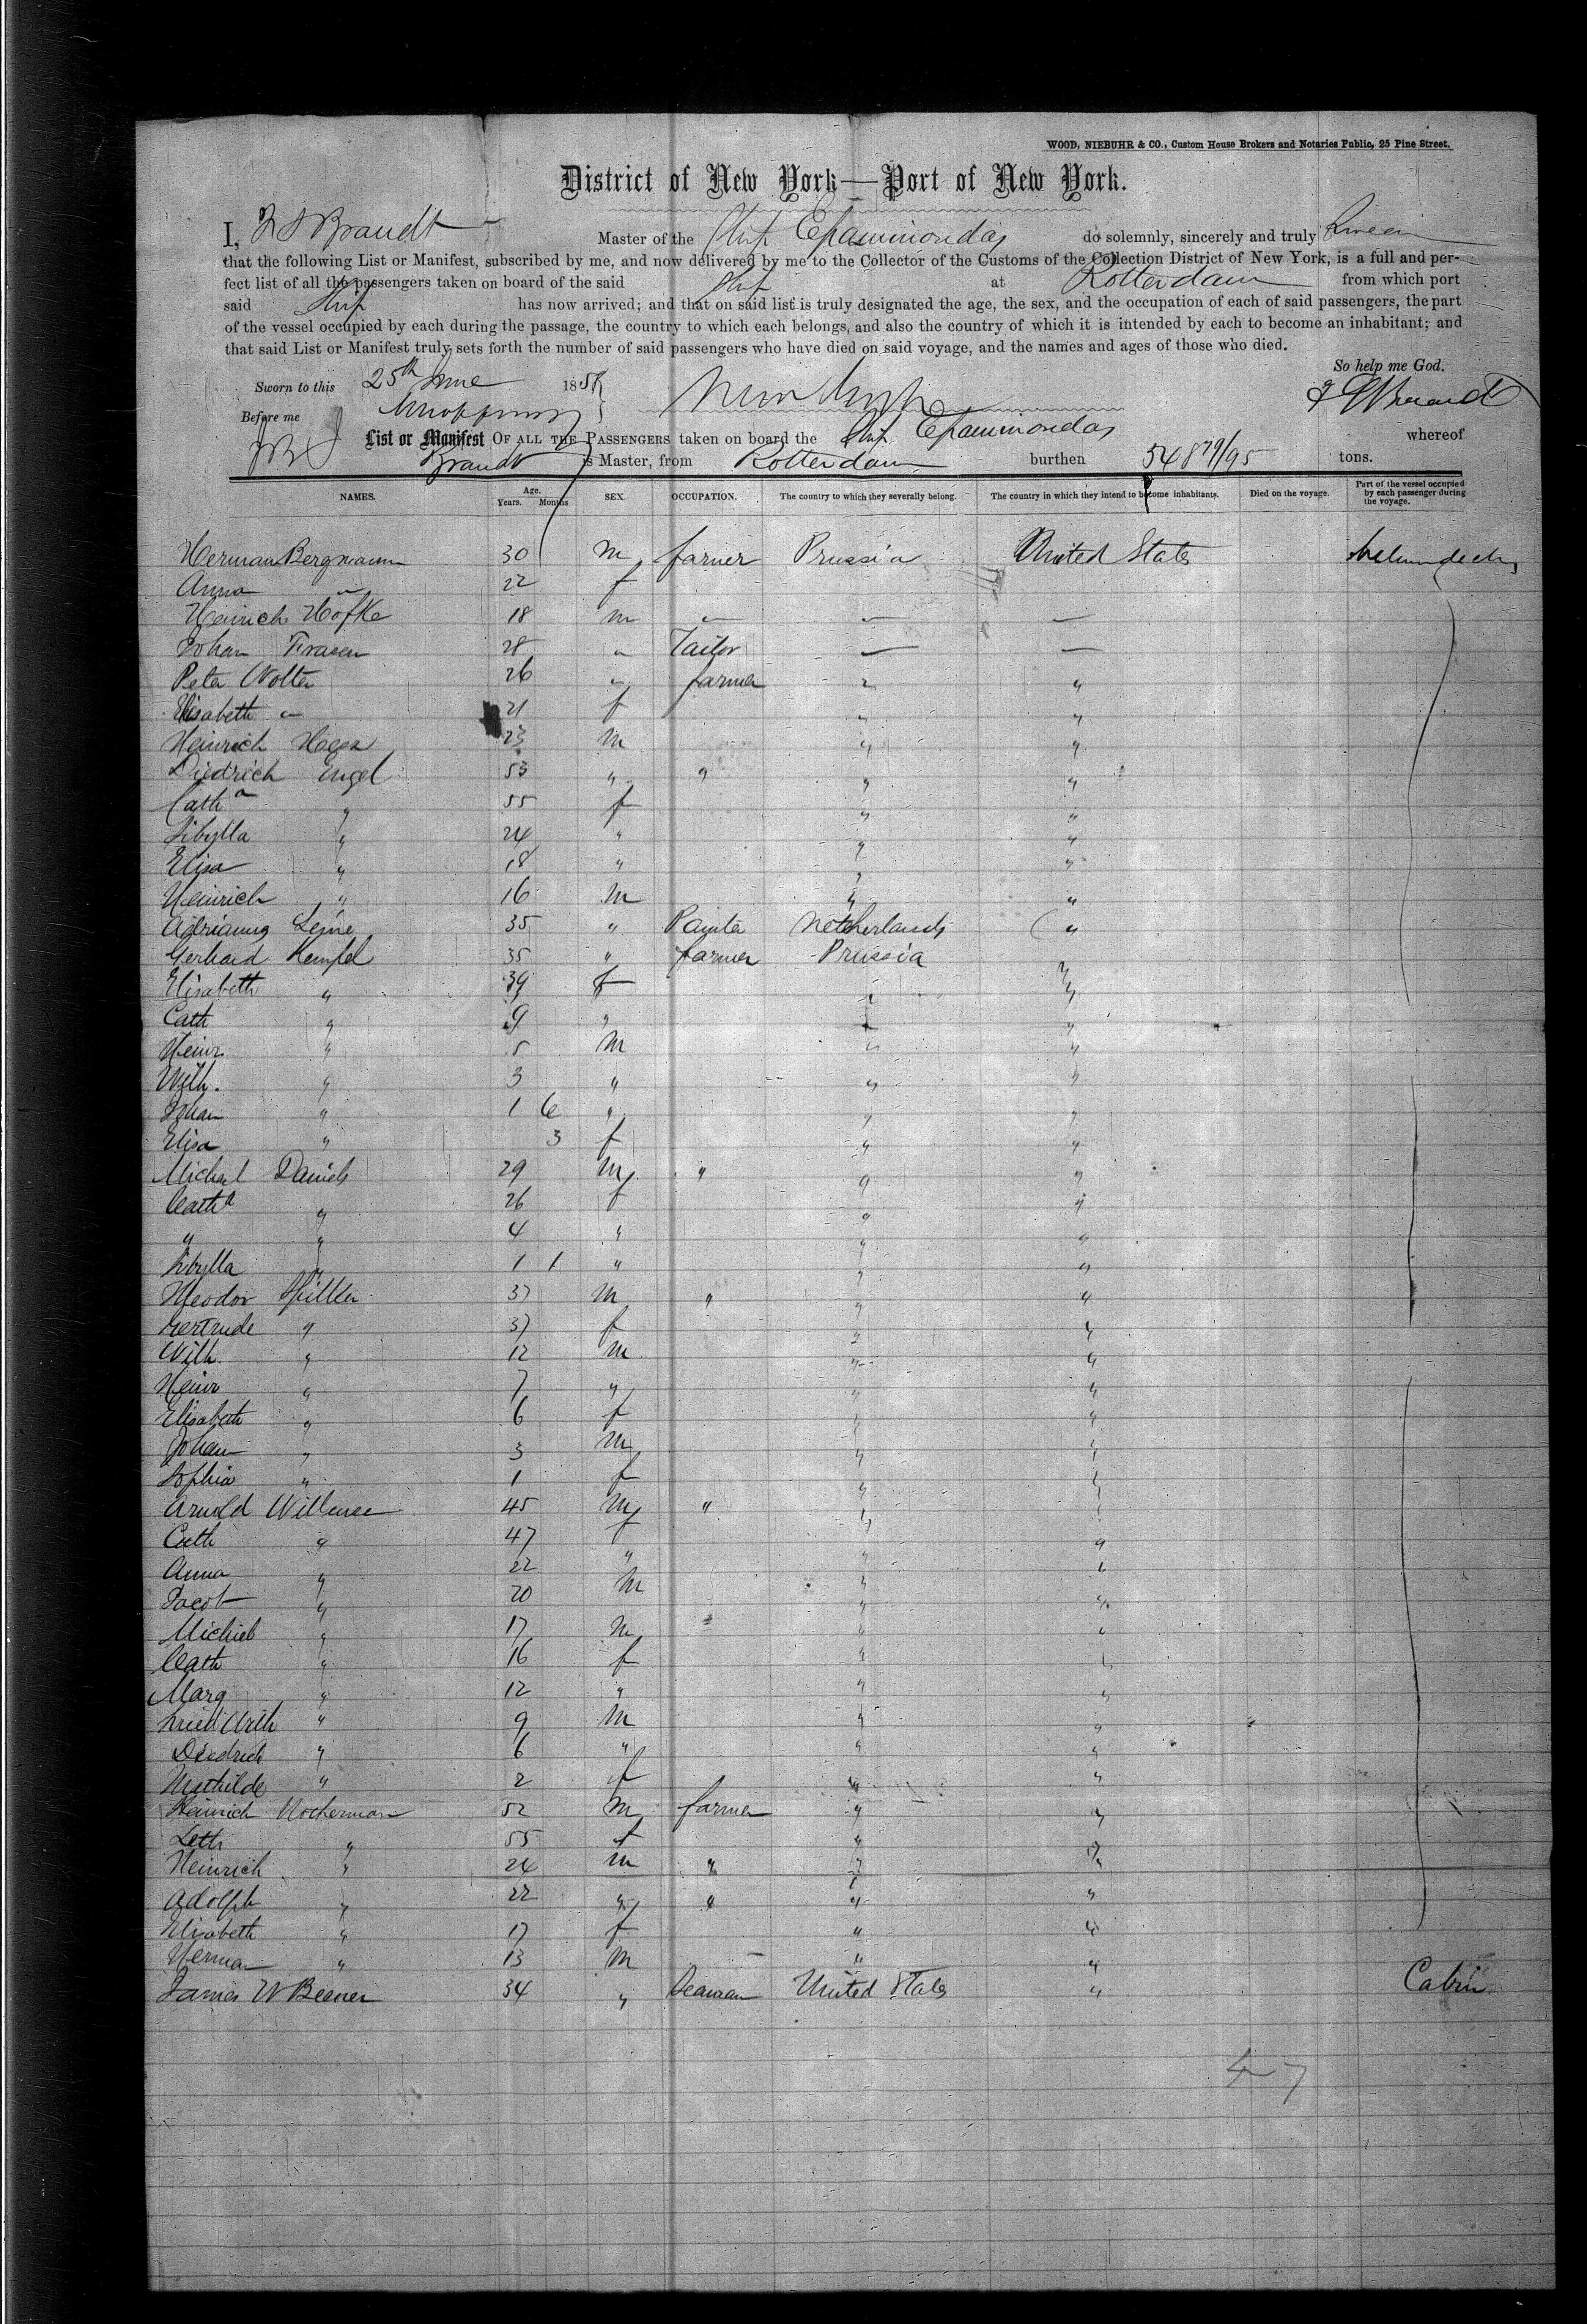 WOOD, NIEBUHR & CO., Custom House Brokers and Notaries Public, 25 Pine Street.
District of New York—Port of New York.
I, Brandt Master of the Ship Epaminondas do solemnly, sincerely and truly Swear
that the following List or Manifest, subscribed by me, and now delivered by me to the Collector of the Customs of the Collection District of New York, is a full and per-
fect list of all the passengers taken on board of the said Ship at Rotterdam from which port
said Ship has now arrived; and that on said list is truly designated the age, the sex, and the occupation of each of said passengers, the part
of the vessel occupied by each during the passage, the country to which each belongs, and also the country of which it is intended by each to become an inhabitant; and
that said List or Manifest truly sets forth the number of said passengers who have died on said voyage, and the names and ages of those who died.
So help me God.
Sworn to this 25th June 185
Before me
List or Manifest OF ALL THE PASSENGERS taken on board the Ship Epaminondas whereof
Brandt is Master, from Rotterdam burthen 548 79/95 tons.
NAMES. Age. Years. Months SEX. OCCUPATION. The country to which they severally belong. The country in which they intend to become inhabitants. Died on the voyage. Part of the vessel occupied by each passenger during the voyage.
Herman Bergmann 30 m farmer Prussia United States
Anna " 22 f
Heinrich Hofke 18 m " " "
Johan 28 " Tailor " "
Peter Wolter 26 " farmer " "
Elisabeth " 21 f " "
Heinrich 23 m " "
Diedrich Engel 53 " " " "
Catha " 55 f " "
Sibylla " 24 " " "
Elisa " 18 " " "
Heinrich " 16 m " "
Adrianus 35 " Painter Netherlands "
Gerhard Hempel 35 " farmer Prussia "
Elisabeth " 39 f " "
Cath " 9 " " "
Heinr. " 5 m " "
Wilh. " 3 " " "
Johan " 1 6 " " "
Elisa " 3 f " "
Michael Daniels 29 m " " "
Catha " 26 f " "
" " 4 " " "
Sibylla " 1 1 " " "
Theodor 37 m " " "
Gertrude " 37 f " "
Wilh. " 12 m " "
Heinr " 7 " " "
Elisabeth " 6 f " "
Johan " 3 m " "
Sophia " 1 f " "
Arnold 45 m " " "
Cath " 47 f " "
Anna " 22 " " "
Jacob " 20 m " "
Michiel " 17 m " "
Cath " 16 f " "
Marg " 12 " " "
Wilh " 9 m " "
Diedrich " 6 " " "
Mathilde " 2 f " "
Heinrich 52 m farmer " "
" 55 f " "
Heinrich " 24 m " " "
Adolph " 22 " " " "
Elisabeth " 17 f " "
Herman " 13 m " "
James W 34 " Seaman United States " Cabin
47